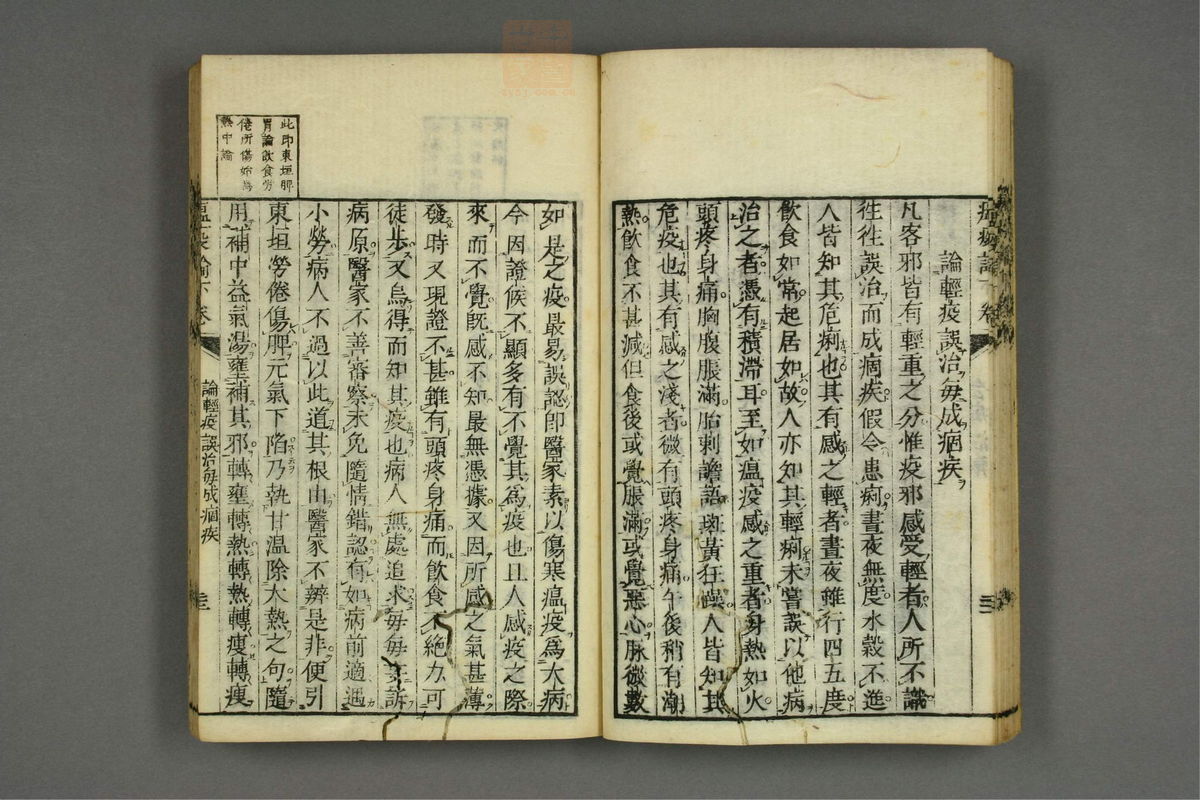 論輕疫誤治每成痼疾
凡客邪皆有輕重之分惟疫邪感受輕者人所不識
往往誤治而成痼疾假令患痢晝夜無度水穀不進
人皆知其危痢也其有感之輕者晝夜雖行四五度
飲食如常起居如故人亦知其輕痢未嘗誤以他病
治之者憑有積滯耳至如瘟疫感之重者身熱如火
頭疼身痛胸腹脹滿胎刺譫語斑黃狂躁人皆知其
危疫也其有感之淺者微有頭疼身痛午後稍有潮
熱飲食不甚減但食後或覺脹滿或覺惡心脉微數
如是之疫最易誤認卽醫家素以傷寒瘟疫爲大病
今因證候不顯多有不覺其爲疫也且人感疫之際
來而不覺旣感不知最無憑據又因所感之氣甚薄
發時又現證不甚雖有頭疼身痛而飲食不絕力可
徒步又烏得而知其疫也病人無處追求每每妄訴
病原醫家不善審察未免隨情錯認有如病前適遇
小勞病人不過以此道其根由醫家不辨是非便引
東垣勞倦傷脾元氣下陷乃執甘溫除大熱之句隨
用補中益氣湯壅補其邪轉壅轉熱轉熱轉瘦轉瘦
此卽東垣脾
胃論飲食勞
倦所傷始爲
熱中論
論輕疫誤治每成痼疾